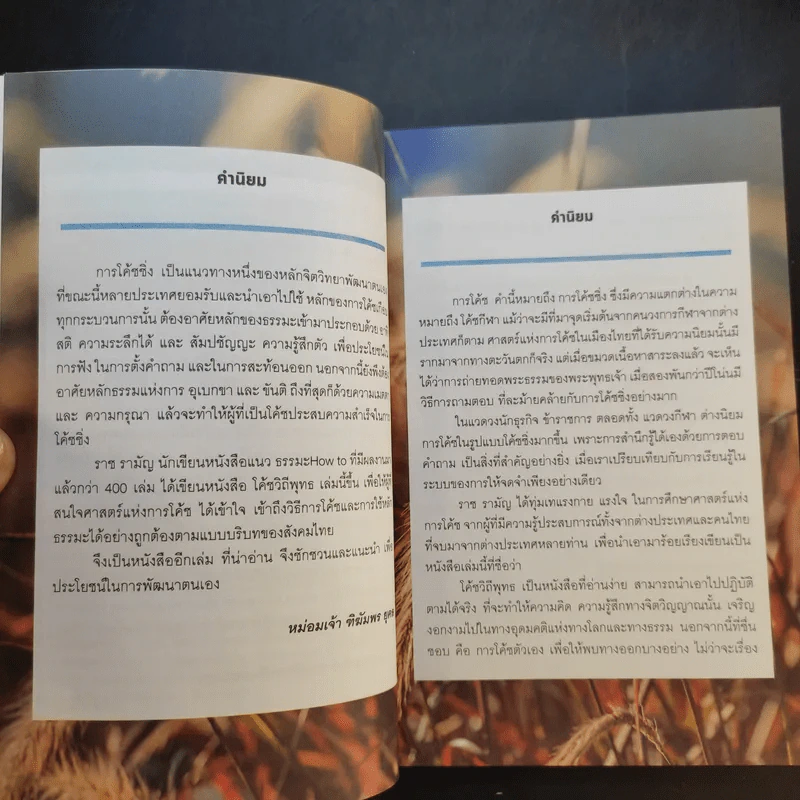 คำนิยม
การโค้ชซิ่ง เป็นแนวทางหนึ่งของหลักจิตวิทยาพัฒนาตนเอง
ที่ขณะนี้หลายประเทศยอมรับและนำเอาไปใช้ หลักของการโค้ชเกือบ
ทุกกระบวนการนั้น ต้องอาศัยหลักของธรรมะเข้ามาประกอบด้วย อาทิ
สติ ความระลึกได้ และ สัมปชัญญะ ความรู้สึกตัว เพื่อประโยชน์ใน
การฟัง ในการตั้งคำถาม และในการสะท้อนออก นอกจากนี้ยังพึงต้อง
อาศัยหลักธรรมแห่งการ อุเบกขา และ ขันติ ถึงที่สุดก็ด้วยความเมตตา
และ ความกรุณา แล้วจะทำให้ผู้ที่เป็นโค้ชประสบความสำเร็จในการ
โค้ชซิ่ง
ราช รามัญ นักเขียนหนังสือแนว ธรรมะHow to ที่มีผลงานมา
แล้วกว่า 400 เล่ม ได้เขียนหนังสือ โค้ชวิถีพุทธ เล่มนี้ขึ้น เพื่อให้ผู้ที่
สนใจศาสตร์แห่งการโค้ช ได้เข้าใจ เข้าถึงวิธีการโค้ชและการใช้หลัก
ธรรมะได้อย่างถูกต้องตามแบบบริบทของสังคมไทย
จึงเป็นหนังสืออีกเล่ม ที่น่าอ่าน จึงชักชวนและแนะนำ เพื่อ
ประโยชน์ในการพัฒนาตนเอง
หม่อมเจ้า ฑิฆัมพร ยุคล
คำนิยม
การโค้ช คำนี้หมายถึง การโค้ชซิ่ง ซึ่งมีความแตกต่างในความ
หมายถึง โค้ชกีฬา แม้ว่าจะมีที่มาจุดเริ่มต้นจากคนวงการกีฬาจากต่าง
ประเทศก็ตาม ศาสตร์แห่งการโค้ชในเมืองไทยที่ได้รับความนิยมนั้นมี
รากมาจากทางตะวันตกก็จริง แต่เมื่อขมวดเนื้อหาสาระลงแล้ว จะเห็น
ได้ว่าการถ่ายทอดพระธรรมของพระพุทธเจ้า เมื่อสองพันกว่าปีโน่นมี
วิธีการถามตอบ ที่ละม้ายคล้ายกับการโค้ชซิ่งอย่างมาก
ในแวดวงนักธุรกิจ ข้าราชการ ตลอดทั้ง แวดวงกีฬา ต่างนิยม
การโค้ชในรูปแบบโค้ชซิ่งมากขึ้น เพราะการสำนึกรู้ได้เองด้วยการตอบ
คำถาม เป็นสิ่งที่สำคัญอย่างยิ่ง เมื่อเราเปรียบเทียบกับการเรียนรู้ใน
ระบบของการให้จดจำเพียงอย่างเดียว
ราช รามัญ ได้ทุ่มเทแรงกาย แรงใจ ในการศึกษาศาสตร์แห่ง
การโค้ช จากผู้ที่มีความรู้ประสบการณ์ทั้งจากต่างประเทศและคนไทย
ที่จบมาจากต่างประเทศหลายท่าน เพื่อนำเอามาร้อยเรียงเขียนเป็น
หนังสือเล่มนี้ที่ชื่อว่า
โค้ชวิถีพุทธ เป็นหนังสือที่อ่านง่าย สามารถนำเอาไปปฏิบัติ
ตามได้จริง ที่จะทำให้ความคิด ความรู้สึกทางจิตวิญญาณนั้น เจริญ
งอกงามไปในทางอุดมคติแห่งทางโลกและทางธรรม นอกจากนี้ที่ชื่น
ชอบ คือ การโค้ชตัวเอง เพื่อให้พบทางออกบางอย่าง ไม่ว่าจะเรื่อง